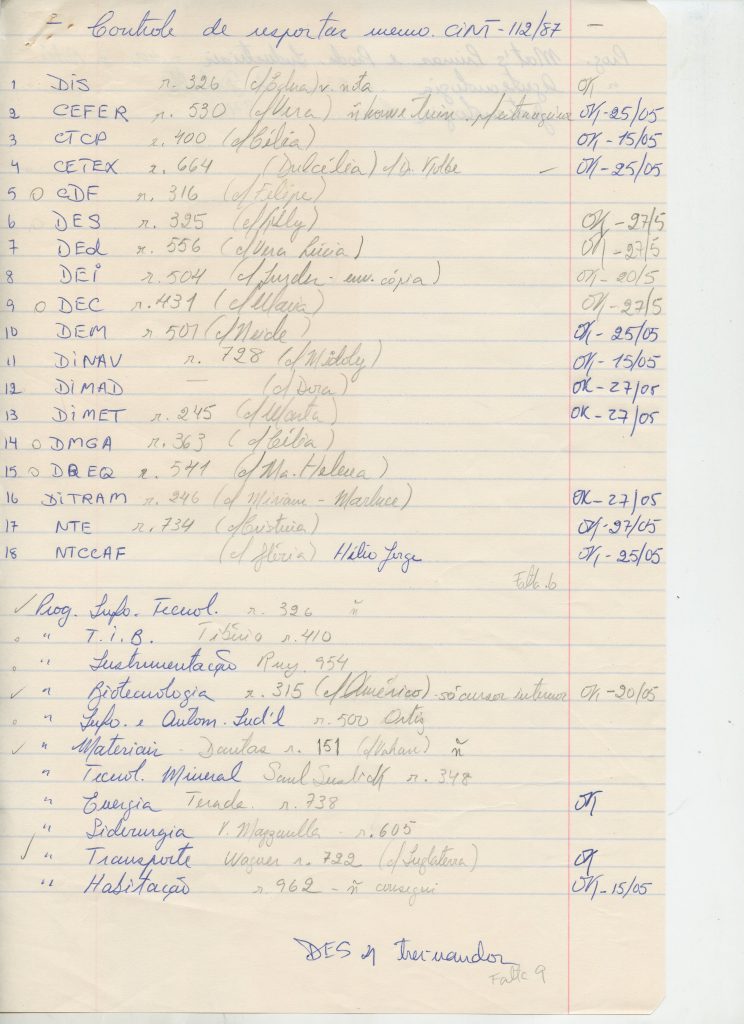 Controle de respostas memo. CINT-112/87 —
1 DIS r. 326 v. nota OK
2 CEFER r. 530 (c/Vera) ñ houve trein p/estrangeiro OK-25/05
3 CTCP r. 400 (c/Célia) OK-15/05
4 CETEX r. 664 (Dulcélia) c/ Dr. Kolbe — OK-25/05
5 O CDF r. 316 (c/Felipe)
6 O DES r. 325 OK-27/5
7 DEd r. 556 (c/Vera Lúcia) OK-27/5
8 DEi r. 504 env. cópia) OK-20/5
9 O DEC r. 431 (c/Maria) OK-27/5
10 DEM r 501 (c/Neide) OK-25/05
11 DiNAV r. 728 OK-15/05
12 DIMAD — (c/Dora) OK-27/05
13 DiMET r. 245 (c/Marta) OK-27/05
14 O DMGA r. 363 (c/Célia)
15 O DQEQ r. 541 (c/Ma. Helena)
16 DiTRAM r. 246 (c/ Miriam - Marluce) OK-27/05
17 NTE r. 734 (c/Cristina) OK-27/05
18 NTCCAF (c/ Glória) Hélio Jorge OK-25/05
Falta 6
✓ Prog. Info. Tecnol. r. 326 ñ
o " T.I.B. Tibério r. 410
o " Instrumentação Ruy 954
✓ " Biotecnologia r. 315 (c/Américo) - só cursor interior OK-20/05
o " Info. e Autom. Ind'l r. 500 Ortiz
✓ " Materiais - Dantas r. 151 (c/Vahan) ñ
" Tecnol. Mineral Saul Suslick r. 348
" Energia Terada. r. 738 OK
" Siderurgia r. 605
✓ " Transporte Wagner r. 722 (c/Inglaterra) OK
" Habitação r. 962 - ñ consegui OK-15/05
DES 21 treinandos
Falta 9